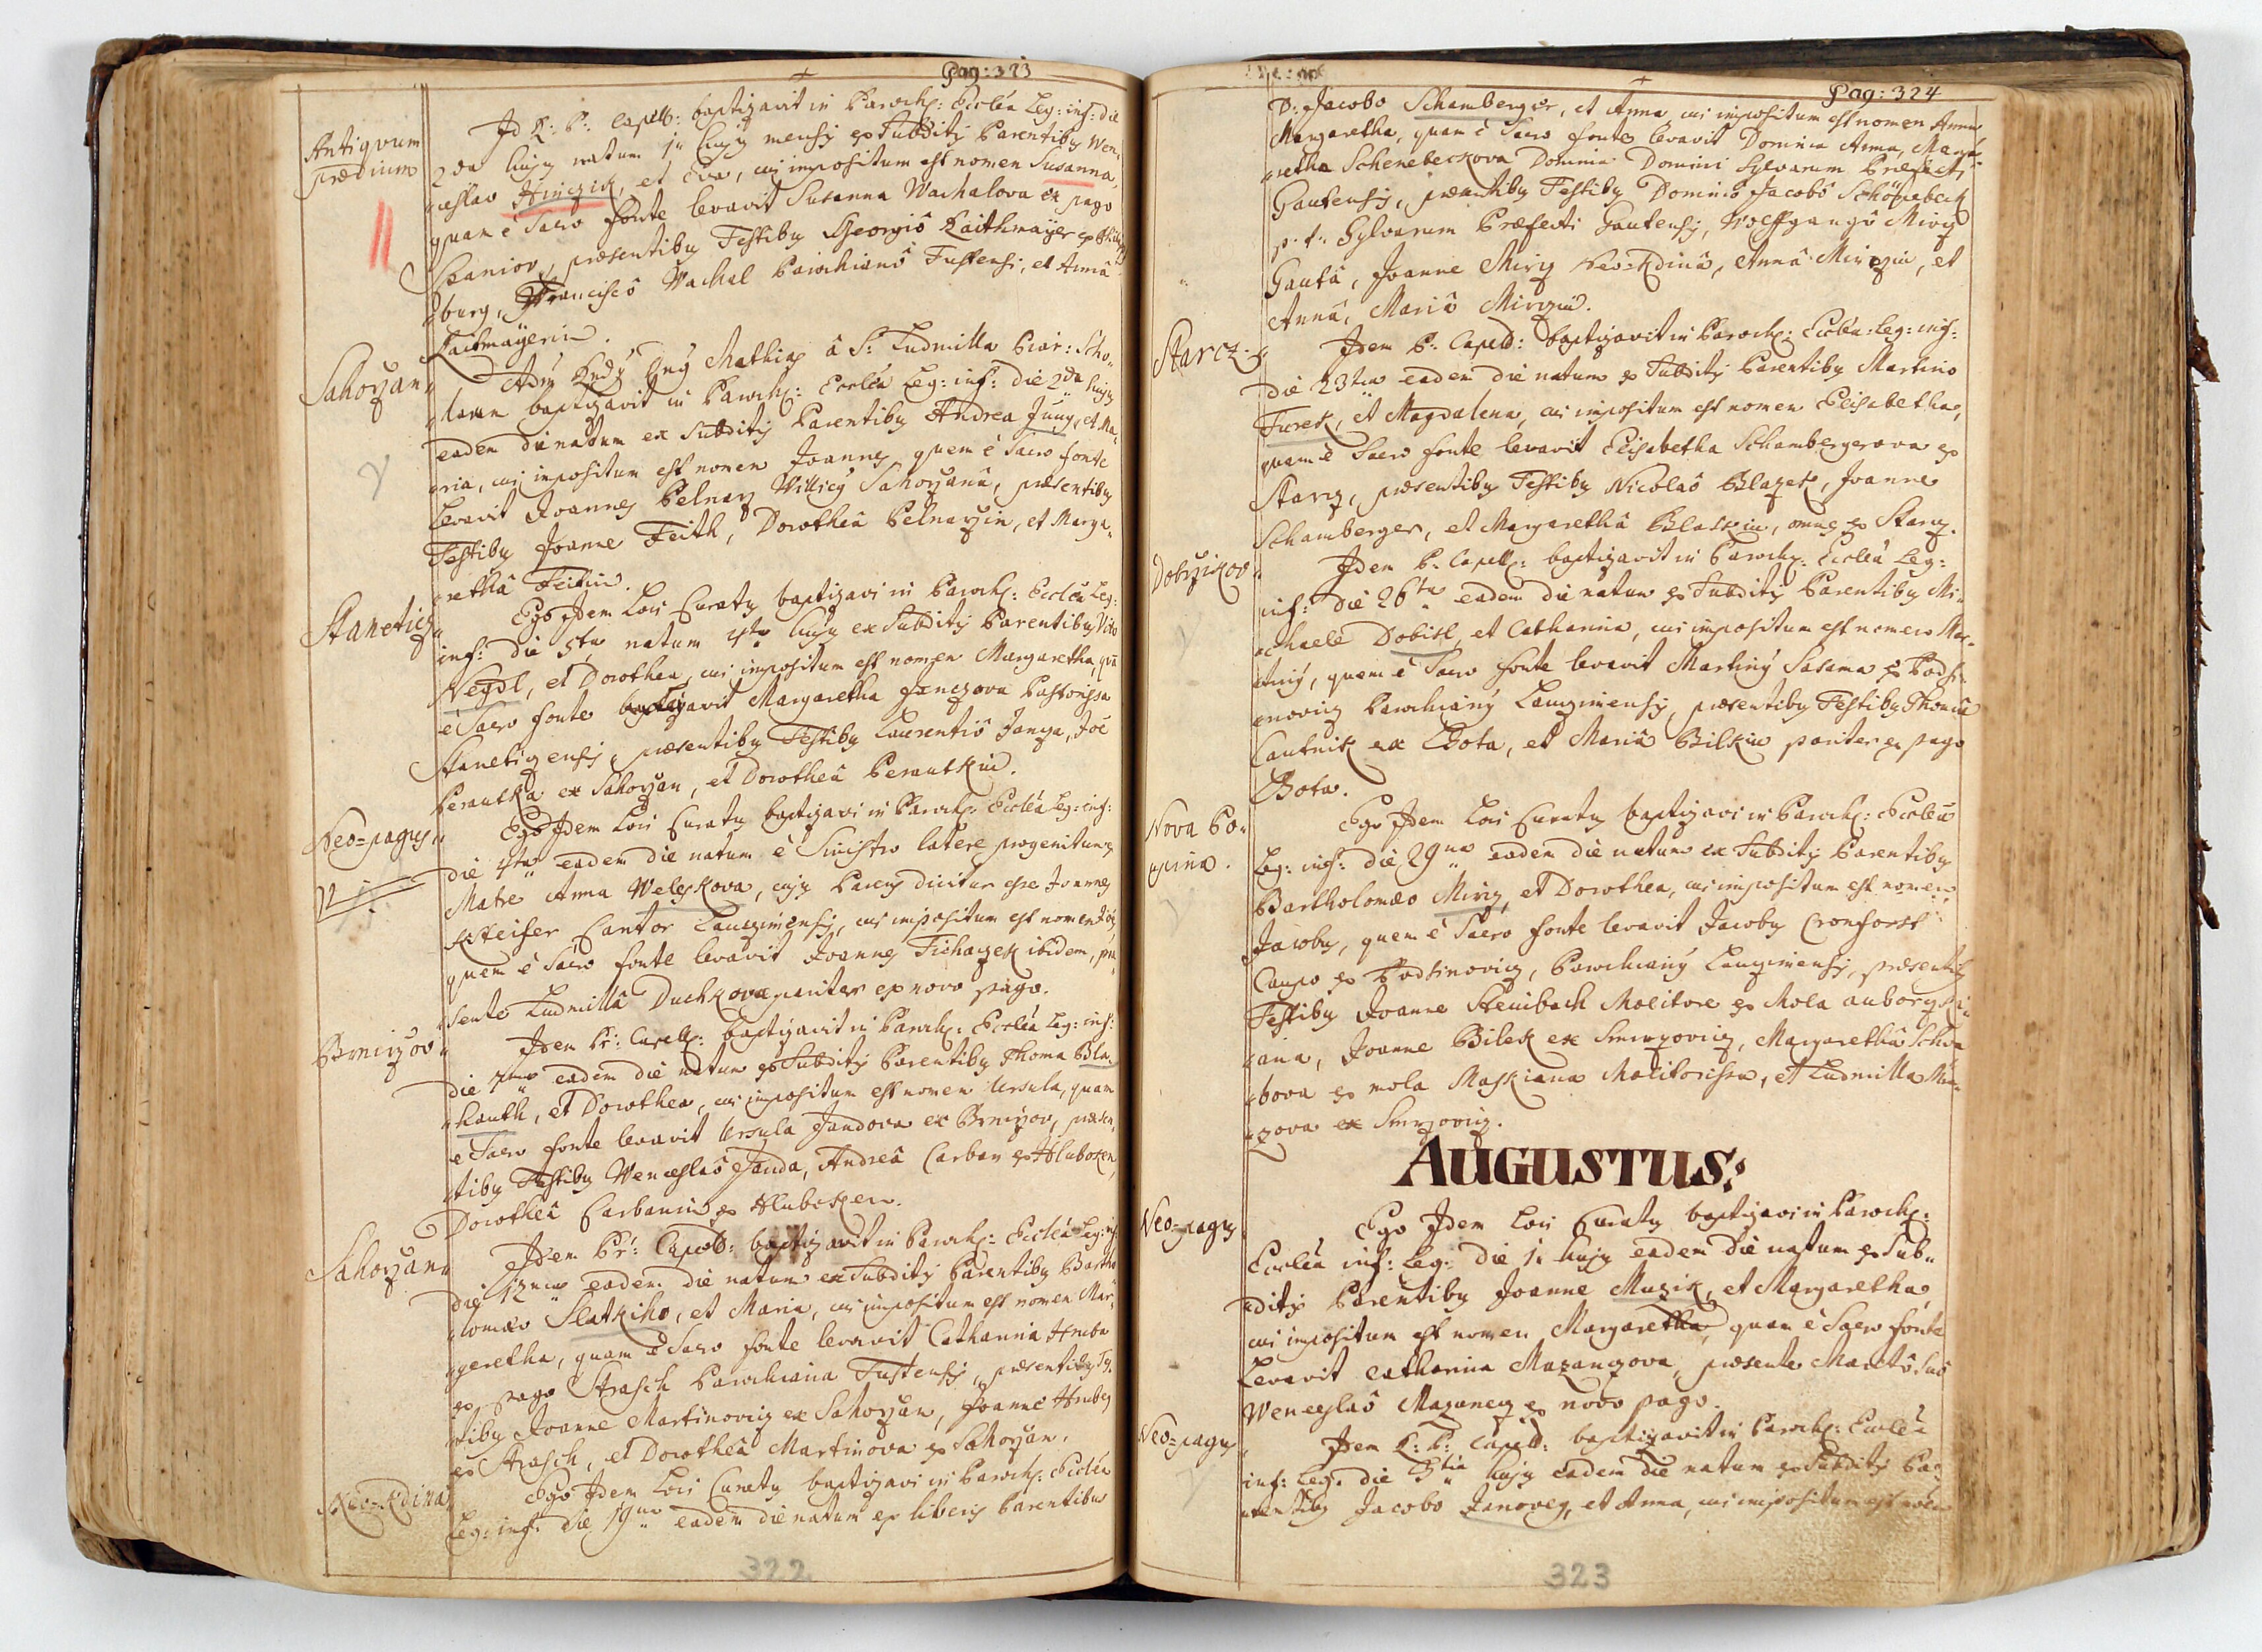 Pag: 323
Antiqvum
prædium
Id R: P: Capell: baptizavit in Paroch: Eccl̃ia Leg: inf: die
2da hujꝰ natam 1a hujꝰ mensis ex subditis Parentibꝰ Wen=
ceslao Hinczik, et Eva, cui impositum est nomen Susanna,
quam è Sacro fonte levavit Susanna Wachalova ex pago
Spaniov, præsentibꝰ Testibꝰ Georgiô Raithmaÿer ex
burg, Franciscô Wachal Parochianô Tustensi, et Annâ
Raitmaÿerin.
Sahorzan
Adm̃ Rndꝰ Dnꝰ Mathias à S: Ludmilla Piar: Scho=
larum baptizavit in Paroch: Eccl̃ia Leg: inf: die 2da hujꝰ
eadem die natum ex subditis Parentibꝰ Andrea Jung, et Ma=
ria, cui impositum est nomen Joannes quem è Sacro fonte
Levavit Joannes Pelnarz Willicꝰ Sahorzanâ, præsentibꝰ
Testibꝰ Joanne Feith, Dorotheâ Pelnarzin, et Marga=
rethâ Feitin.
Staneticz
Ego Idem Loci Curatꝰ baptizavi in Paroch: Eccl̃ia Leg:
inf: die 5ta natam 4ta hujꝰ ex Subditis Parentibꝰ Vito
Negdl, et Dorothea, cui impositum est nomen Margaretha, quã
è Sacro fonte levavit Margaretha Janczova Pastorissa
Staneticensis, præsentibꝰ Testibꝰ Laurentiô Janza, Joẽ
Perautka ex Sahorzan, et Dorotheâ Perautkin.
Neo=pagus
Ego Idem Loci Curatꝰ baptizavi in Paroch: Eccl̃ia Leg: inf:
die 4ta eadem die natum è Sinistro latere progenitum
Matre Anna Welczkova, cujꝰ Parens dicitur esse Joannes
Steiser Cantor Lauczimensis, cui impositum est nomen
quem è Sacro fonte levavit Joannes Tichaczek ibidem, præ=
sente Ludmillâ Duchkova pariter ex novo pago.
Brnirzov
Idem Pr: Capell: baptizavit in Paroch: Eccl̃ia Leg: inf:
die 7ma eadem die natam ex Subditis Parentibꝰ Thoma Bla=
hauth, et Dorothea, cui impositum est nomen Ursula, quam
è Sacro fonte levavit Ursula Jandova ex Brnirzov, præsen=
tibꝰ Testibꝰ Wenceslaô Janda, Andreâ Carban ex Hluboken,
Dorotheâ Carbanin ex Hluboken.
Sahorzan
Idem Pr: Capell: baptizavit in Paroch: Eccl̃ia Leg: inf:
die 12ma eadem die natam ex Subditis Parentibꝰ Bartho=
lomæo Slatkiho, et Maria, cui impositum est nomen Mar=
garetha, quam è Sacro fonte levavit Catharina Hruba
ex pago Strasch Parochiana Tustensis, præsentibꝰ Tes=
tibꝰ Joanne Martinovicz ex Sahorzan, Joanne Hruby
ex Strasch, et Dorotheâ Martinova ex Sahorzan.
Neo=Kdina
Ego Idem Loci Curatꝰ baptizavi in Paroch: Eccl̃ia
Leg: inf: die 19na eadem die natam ex liberis Parentibus
322
Pag: 324
D: Jacobo Schamberger, et Anna cui impositum est nomen Anna
Margaretha, quam è Sacro fonte levavit Domina Anna, Marga=
retha Schenebeckova Domina Domini Sylvarum Præfecti
Gautensis, præsentibꝰ Testibꝰ Dominô Jacobô Schönebeck
p. t. Sylvarum Præfecti Gautensis, Wolffgangô Mirz
Gautâ, Joanne Mirz Neo=Kdinâ, Annâ Mirzin, et
Annâ, Mariâ Mirzin.
Starcz
Idem P: Capell: baptizavit in Paroch: Eccl̃ia: Leg: inf:
die 23tia eadem die natam ex Subditis Parentibꝰ Martino
Turek, et Magdalena, cui impositum est nomen Elisabetha,
quam è Sacro fonte levavit Elisabetha Schambergerova ex
Starcz, præsentibꝰ Testibꝰ Nicolaô Blazek, Joanne
Schamberger, et Margarethâ Blaskin, omnes ex Starcz.
Dobrzikov
Idem P: Capell: baptizavit in Paroch: Eccl̃ia Leg:
inf: die 26ta eadem die natum ex Subditis Parentibꝰ Mi=
chaele Dobisl, et Catharina, cui impositum est nomen Mar=
tinꝰ, quem è Sacro fonte levavit Martinꝰ Salama ex Pods=
novicz Parochianꝰ Lauczimensis, præsentibꝰ Testibꝰ Thomâ
Cautnik ex Lhota, et Mariâ Bilkin pariter ex pago
Lhota.
Nova Po=
pina.
Ego Idem Loci Curatꝰ baptizavi in Paroch: Eccl̃ia
Leg: inf: die 29na eadem die natum ex Subditis Parentibꝰ
Bartholomæo Mirz, et Dorothea, cui impositum est nomen
Jacobꝰ, quem è Sacro fonte levavit Jacobꝰ Cronforst
Caupo ex Podsinovicz, Parochianꝰ Lauczimensis, præsentibꝰ
Testibꝰ Joanne Steinbach Molitore ex Mola auborzki=
ana, Joanne Bilek ex Smrzovicz, Margarethâ Schwa=
bova ex mola Maskiana Molitorissa, et Ludmilla
zova ex Smrzovicz.
AUGUSTUS:
Neo=pagus
Ego Idem Loci Curatꝰ baptizavi in Paroch:
Eccl̃ia inf: Leg: die 1a hujꝰ eadem die natam ex Sub=
ditis Parentibꝰ Joanne Muzik, et Margaretha
cui impositum est nomen Margaretha, quam è Sacro fonte
Levavit Catharina Mazanczova, præsente Maritô suô
Wenceslaô Mazanecz ex novo pago.
Neo=pagus
Idem R: P: Capell: baptizavit in Paroch: Eccl̃ia
inf: Leg: die 3tia hujꝰ eadem die natam ex Subditis Pa=
rentibꝰ Jacobo Janovecz, et Anna, cui impositum est nomen
323